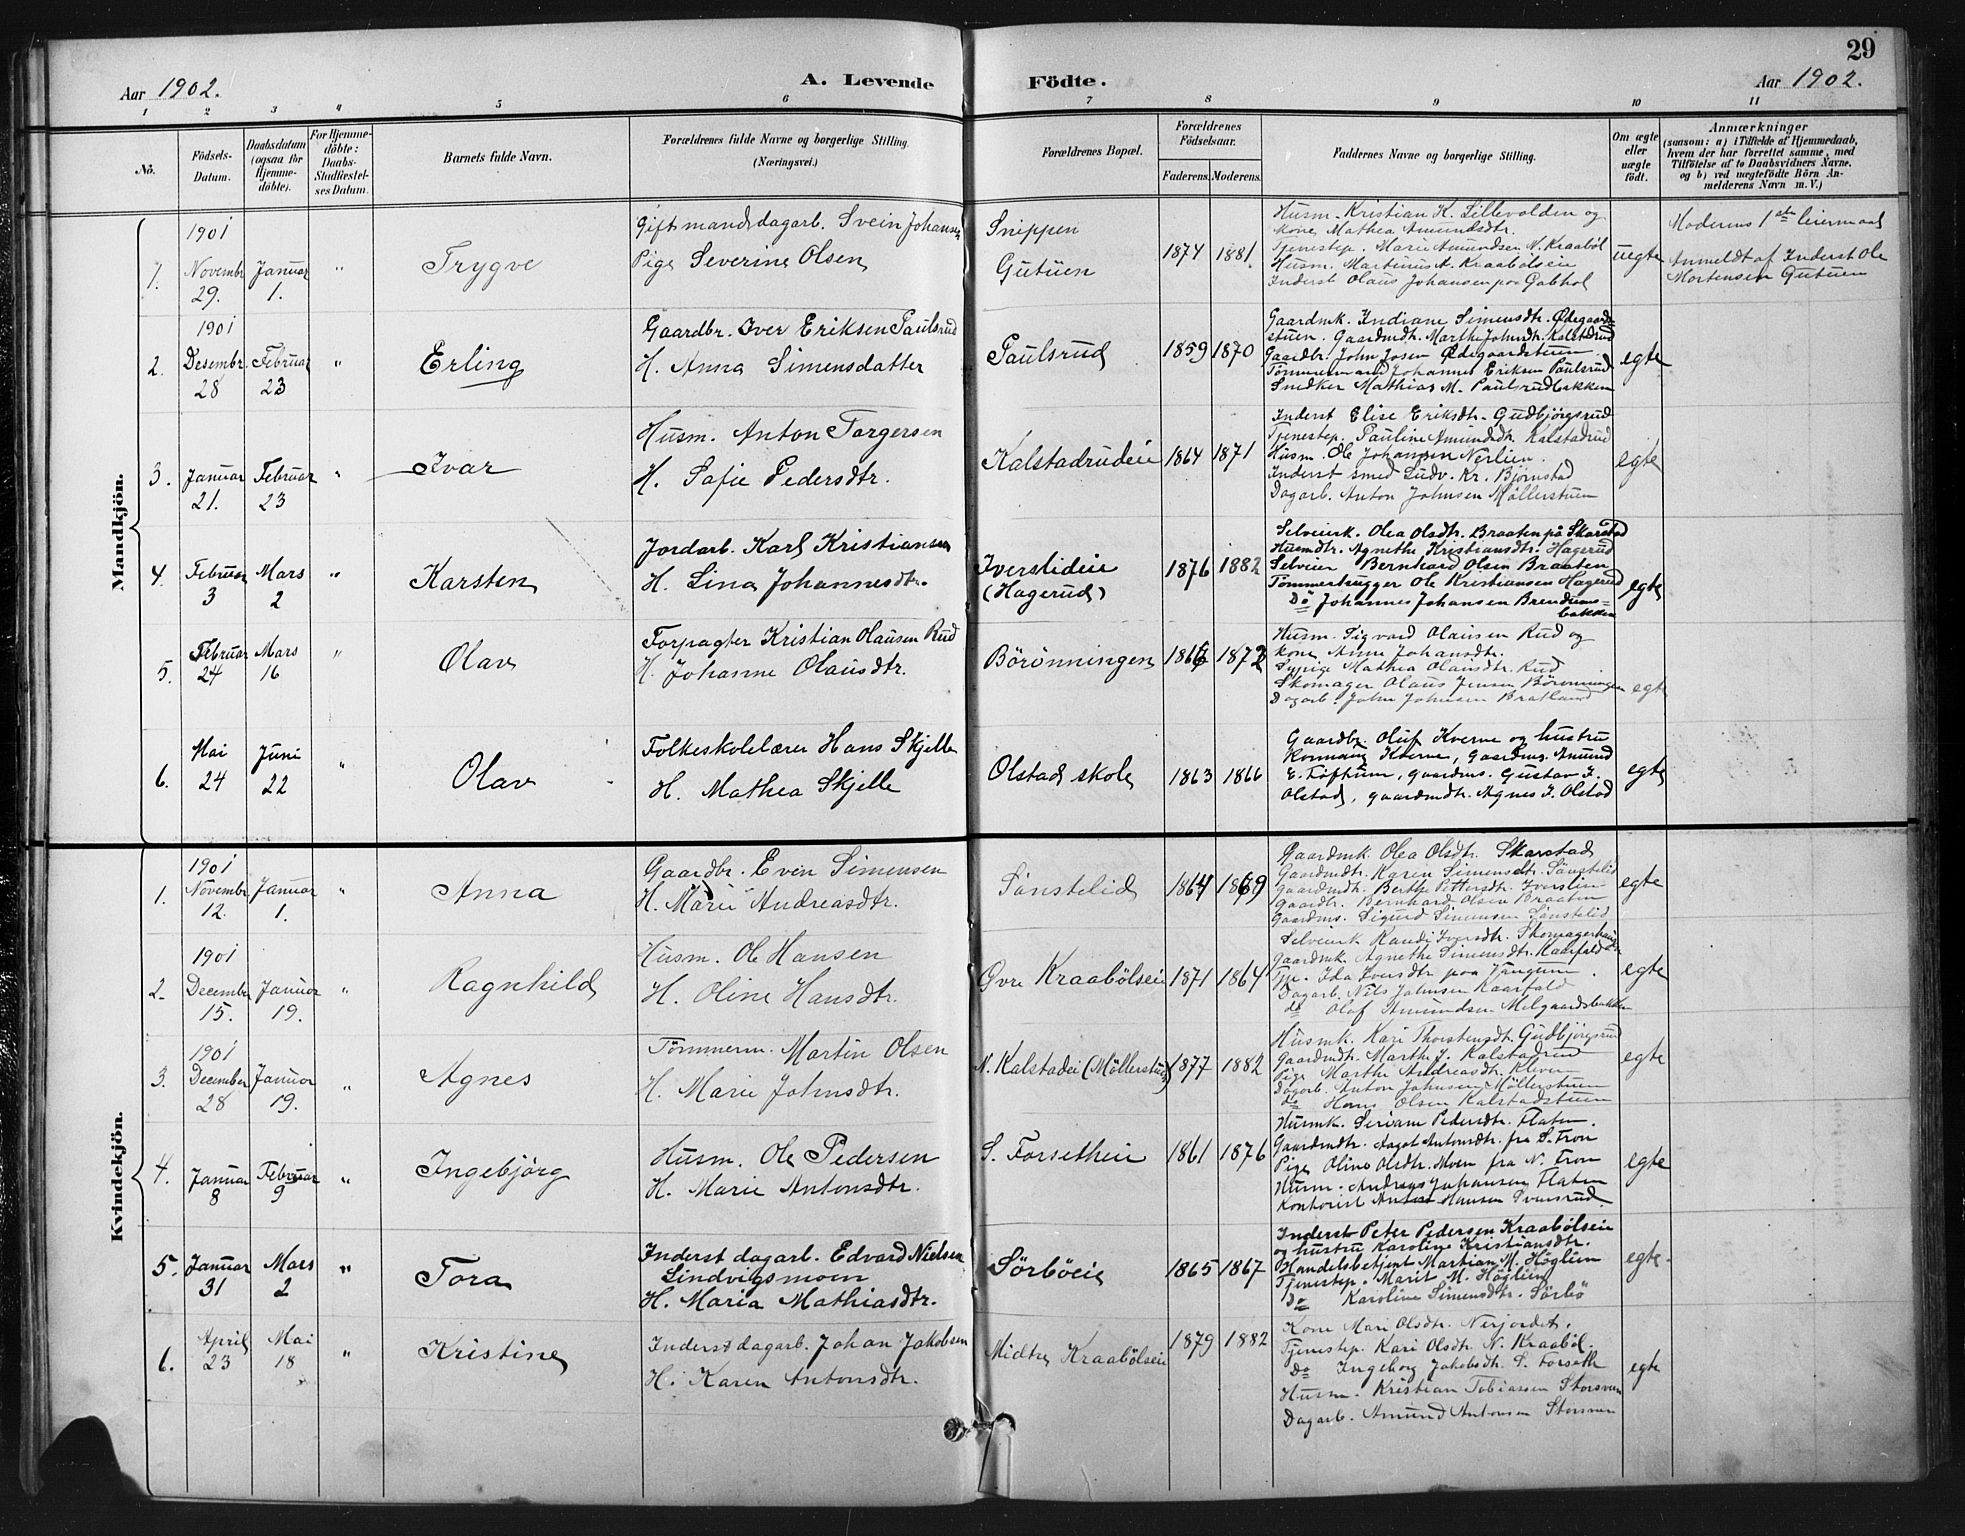 29
Aar 1902.
A. Levende Födte.
Aar 1902.
1 2 3 4 5 6 7 8 9 10 11
No.
Födsels-Datum.
Daabsdatum (ogsaa for Hjemme-döbte).
For Hjemme-döbte: Daabs-Stadfæstel-ses Datum.
Barnets fulde Navn.
Forældrenes fulde Navne og borgerlige Stilling. (Næringsvei.)
Forældrenes Bopæl.
Forældrenes Födselsaar.
Faderens. Moderens.
Faddernes Navne og borgerlige Stilling.
Om ægte eller uægte födt.
Anmærkninger
(saasom: a) i Tilfælde af Hjemmedaab, hvem der har forrettet samme, med Tilföielse af to Daabsvidners Navne, og b) ved uægtefödte Börn An-melderens Navn m. V.)
Mandkjön.
1. 1901 Novembr 29. Januar 1. "
Trygve
Gift mand, dagarb. Svein Johansen
Pige Severine Olsen
Snippen
Gutuen
1874 1881.
Husm. Kristian K. Lillevolden og
kone Mathea Amundsdtr.
Tjenestep. Marie Amundsen N. Kraaböl
Husm. Martinus A. Kraabölseie
Inderst Olaus Johansen paa Gabhol
uegte
Moderens 1ste leiermaal
Anmeldt af Inderst Ole
Mortensen Gutuen
2. 1901 Desembr. 28 Februar 23 "
Erling
Gaardbr. Iver Eriksen Paulsrud
H. Anna Simensdatter
Paulsrud
1859 1870
Gaardmk. Indiane Simensdtr. Ödegaard-
stuen. Gaardmdtr. Marthe Johnsdtr. Kalstadrud
Gaardbr. John Josen Ödegaardstuen
Tömmermand Johannes Eriksen Paulsrud
Snedker Mathias M. Paulsrudbakken
egte
3. Januar 21. Februar 23 "
Ivar
Husm. Anton Torgersen
H. Sofie Pedersdtr.
Kalstadrudeie
1864 1871
Inderst Elise Eriksdtr. Gudbjörgsrud
Tjenestep. Pauline Amundsdtr. Kalstadrud
Husm. Ole Johansen Nerlien.
Inderst smed Ludv. Kr. Bjørnstad
Dagarb. Anton Johnsen Möllerstuen
egte
4. Februar 3 Mars 2 "
Karsten
Jordarb. Karl Kristiansen
H. Lina Johannesdtr.
Iverslideie
(Hagerud)
1876 1882
Selveierk. Olea Olsdtr. Braaten på Skarstad
Husmdtr. Agnethe Kristiansdtr. Hagerud
Selveier Bernhard Olsen Braaten
Tömmerhugger Ole Kristiansen Hagerud
Do Johannes Johansen Brendums-
bakken
egte
5. Februar 24 Mars 16 "
Olav
Forpagter Kristian Olausen Rud
H. Johanne Olausdtr.
Börönningen
1866 1872
Husm. Sigvard Olausen Rud og
kone Anne Johansdtr.
Sypige Mathea Olausdtr. Rud
Skomager Olaus Jensen Börönningen
Dagarb. John Johnsen Bratland
egte
6. Mai 24 Juni 22 "
Olav
Folkeskolelærer Hans Skjelle
H. Mathea Skjelle
Olstad skole
1863 1866
Gaardbr. Oluf Kverne og hustru
Kverne, gaardms. Amund
E. Toftum, gaardms. Gustav J.
Olstad, gaardmdtr. Agnes J. Olstad
egte
Kvindekjön.
1. 1901 Novembr. 12. Januar 1. "
Anna
Gaardbr. Even Simensen
H. Marie Andreasdtr.
Sönstelid
1864 1869
Gaardmk. Olea Olsdtr. Skarstad
Gaardmdtr. Karen Simensdtr. Sönstelid
Gaardmdtr. Berthe Pettersdtr. Iverslien
Gaardbr. Bernhard Olsen Braaten
Gaardms. Sigurd Simensen Sönstelid
egte
2. 1901 December 15. Januar 19. "
Ragnhild
Husm. Ole Hansen
H. Oline Hansdtr.
Övre Kraabölseie
1871 1864
Selveierk Randi Iversdtr. Skomagerhaugen
Gaardmk Agnethe Simensdtr. Kaarfald
Tjp. Ida Iversdtr paa Tangum.
Dagarb. Nils Johnsen Kaarfald
do Olaf Amundsen Melgaardsbakken
egte
3. 1901 December 28 Januar 19. "
Agnes
Tömmerm. Martin Olsen
H. Marie Johnsdtr.
N. Kalstadeie (Möllerstuen)
1877 1882
Husmk. Kari Thorstensdtr. Gudbjörgsrud
Gaardmdtr. Marthe J. Kalstadrud
Pige Marthe Andreasdtr. Kleven
Dagarb. Anton Johnsen Möllerstuen
do Hans Olsen Kalstadstuen
egte
4. Januar 8 Februar 9 "
Ingebjörg
Husm. Ole Pedersen
H. Marie Antonsdtr.
S. Forsetheie
1861 1876
Husmk. Siriane Pedersdtr. Flaten.
Gaardmdtr. Aagot Antonsdtr. fra S. Tron
Pige Oline Olsdtr. Moen fra N. Tron
Husm. Andreas Johansen Flaten
Kontorist Anton Hansen Svensrud
egte
5. Januar 31 Mars 2 "
Tora
Inderst dagarb. Edvard Nielsen
Lindvigsmoen
H. Maria Mathiasdtr.
Sörböeie
1865 1867
Inderst Peter Pedersen Kraabölseie
og hustru Karoline Kristiansdtr.
Handelsbetjent Martian M. Höglien
Tjenestep. Marit M. Höglien
Do Karoline Simensdtr. Sörbö
egte.
6. April 23 Mai 18 "
Kristine
Inderst dagarb. Johan Jakobsen
H. Karen Antonsdtr.
Midtre Kraabölseie
1879 1882
Kone Mari Olsdtr. Nerjordet.
Tjenestep. Kari Olsdtr. N. Kraaböl.
Do Ingeborg Jakobsdtr. S. Forseth
Husm. Kristian Tobiassen Storsveen
Dagarb. Amund Antonsen Storsveen
egte